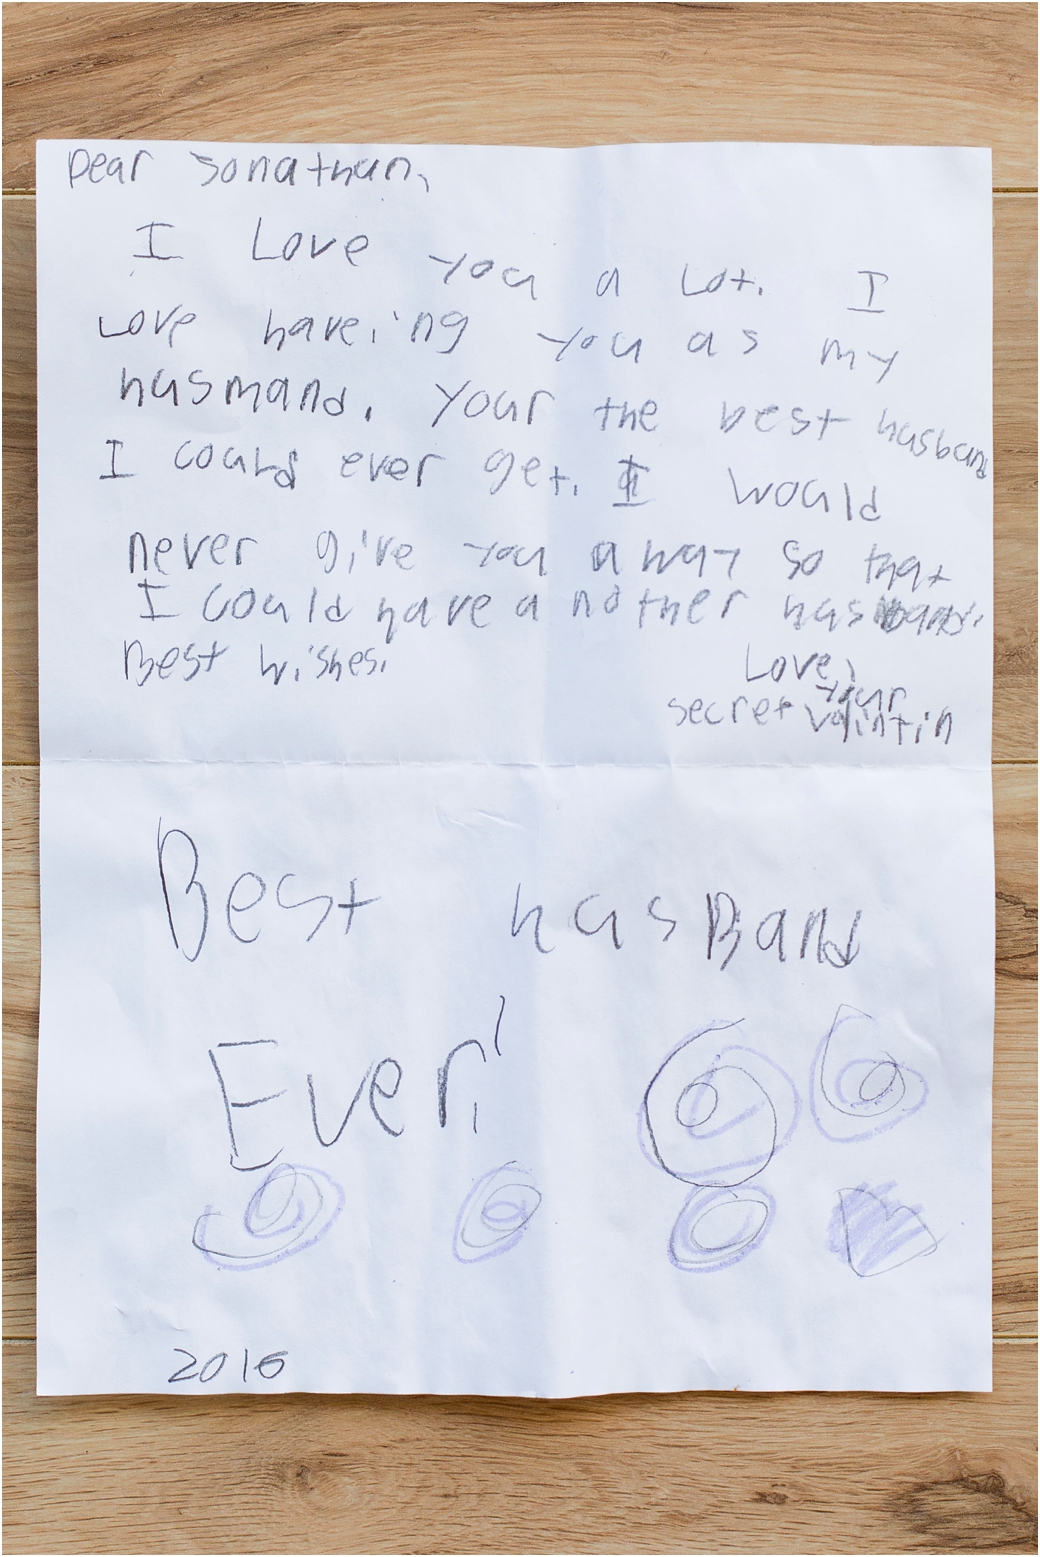 Dear Jonathan,
I Love you a Lot. I
Love haveing you as my
husmand. Your the best husband
I could ever get. I would
never give you away so that
I could have a nother husband.
Best wishes.
Love,
your
secret valintin
Best husBand
Ever!
2016